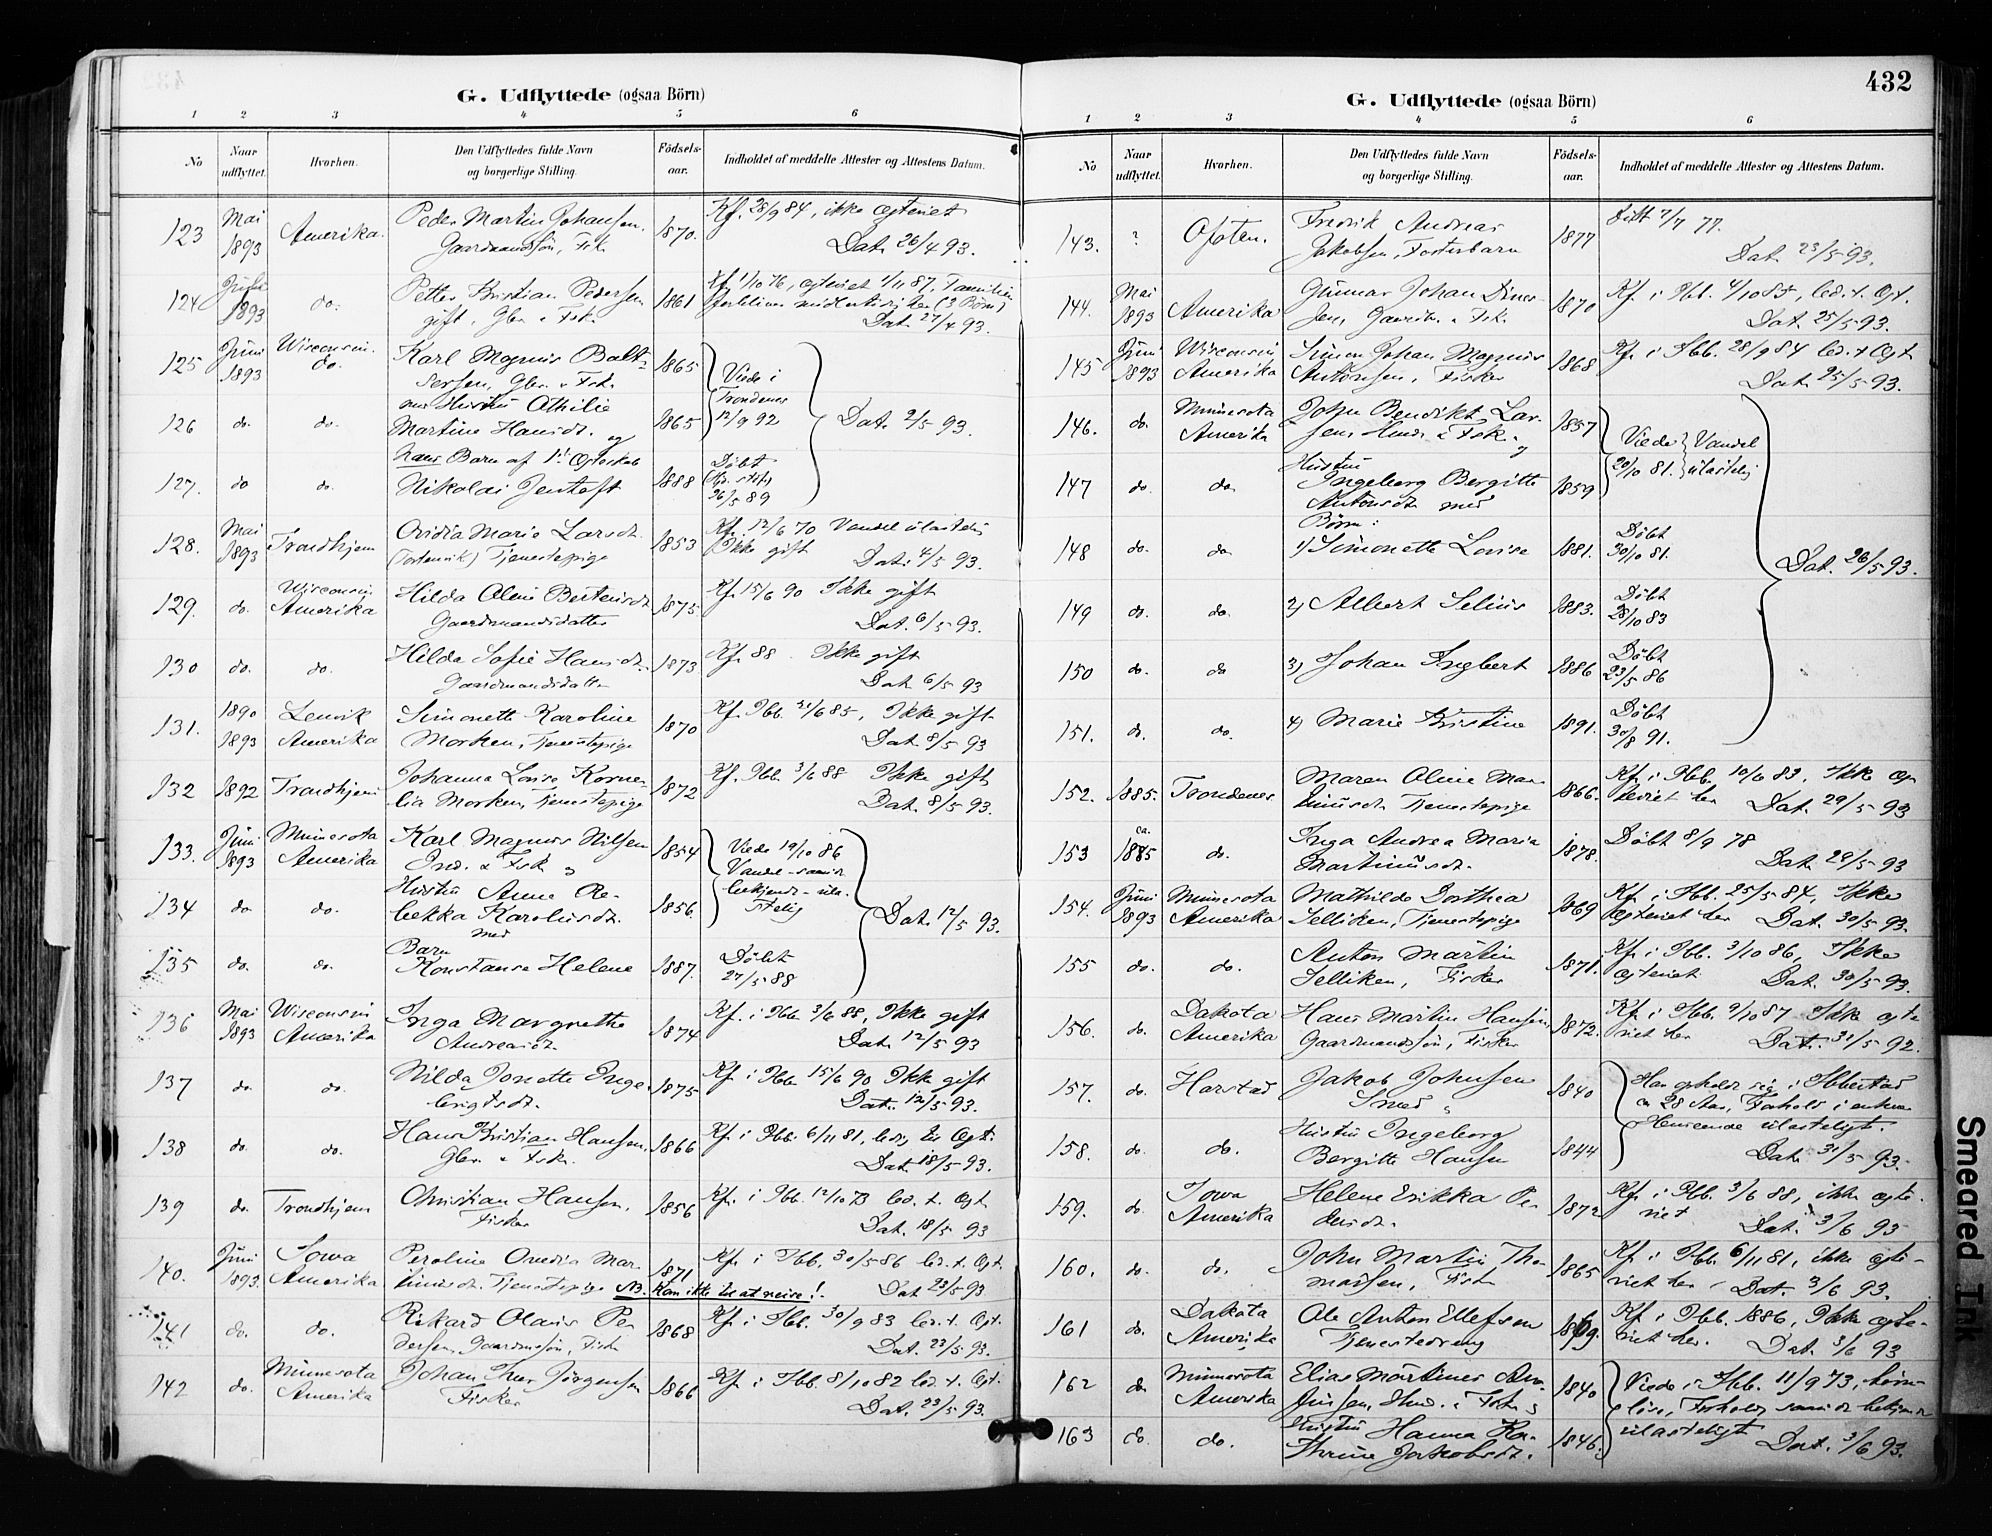 432
G. Udflyttede (ogsaa Börn)
1 2 3 4 5 6
No
Naar udflyttet.
Hvorhen.
Den Udflyttedes fulde Navn og borgerlige Stilling.
Födsels-aar.
Indholdet af meddelte Attester og Attestens Datum.
123 Mai 1893 Amerika. Peder Martin Johansen, Gaardmandssön, Fisk. 1870. Kf. 28/9 84, ikke Ægteviet
Dat. 26/4 93.
124 Juni 1893 do. Petter Kristian Pedersen gift, Gbr. & Fisk. 1861 Kf. 1/10 76, ægteviet 4/11 87. Familien forbliver midlertidig her
Dat. 27/4 93.
125 Juni 1893 Wisconsin. do. Karl Magnus Balt-
sersen, Gbr. & Fisk. 1865 Viede i Trondenes 12/9 92
126 do. do. med Hustru Othilie
Martine Hansdt. og 1865 Dat. 2/5 93.
127. do do. hans Barn af 1st Ægteskab
Nikolai Jentoft 1888 Döbt 26/5 89
128. Mai 1893 Trondhjem Ovidia Marie Larsdt.
Tjenestepige 1853 Kf. 12/6 70 Vandel ulastelig
Ikke gift Dat. 4/5 93.
129. do. Wisconsin Amerika Hilda Oline Bertensdt.
Gaardmandsdatter 1875 Kf. 15/6 90 Ikke gift
Dat. 6/5 93.
130 do. do. Hilda Sofie Hansdt.
Gaardmandsdatter 1873 Kf. 88 Ikke gift
Dat. 6/5 93
131. 1890 1893 Lenvik Amerika Simonette Karoline
Morken, Tjenestepige 1870 Kf. Ibb. 21/6 85, Ikke gift
Dat. 8/5 93
132 1892 Trondhjem Johanna Lovise Korne-
lia Morken, Tjenestepige 1872 Kf. Ibb. 3/6 88 Ikke gift
Dat. 8/5 93.
133. Juni 1893 Minnesota Amerika Karl Magnus Nilsen
Ind. & Fisk. og 1854 Viede 19/10 86
Vandel saavidt bekjendt ulastelig
134 do. do. Hustru Anne Re-
bekka Karolusdt. med 1856. Dat. 12/5 93.
135 do. do. Barn
Konstanse Helene 1887. Döbt 27/5 88
136 Mai 1893 Wisconsin Amerika Inga Margrethe
Andreasdt. 1874 Kf. i Ibb. 3/6 88, Ikke gift
Dat. 12/5 93
137 do. do. Hilda Jonette Enge-
brigtsdt. 1875 Kf. i Ibb 15/6 90 Ikke gift
Dat. 12/5 93.
138 do. do. Hans Kristian Hansen,
Gbr. & Fisk. 1866 Kf. i Ibb. 6/11 81, ledig til Ægt.
Dat. 18/5 93.
139 do. Trondhjem Christian Hansen,
Fisker 1856 Kf. i Ibb. 12/10 73 led. t. Ægt
Dat. 18/5 93
140. Juni 1893. Iowa Amerika Peroline Ovedia Mar-
tinusdt. Tjenestepige 1871 Kf. i Ibb. 30/5 86 led. t. Ægt.
NB. Kom ikke til at reise! Dat. 23/5 93
141 do. do. Rikard Olaus Pe-
dersen, Gaardmssön, Fisk. 1868 Kf. i Ibb. 30/9 83 led. t. Ægt.
Dat. 23/5 93.
142 do. Minnesota Amerika Johan Iver Jörgensen
Fisker 1866 Kf. i Ibb. 8/10 82 led. t. Ægt.
Dat. 23/5 93.
G. Udflyttede (ogsaa Börn)
1 2 3 4 5 6
No
Naar udflyttet.
Hvorhen.
Den Udflyttedes fulde Navn og borgerlige Stilling.
Födsels-aar.
Indholdet af meddelte Attester og Attestens Datum.
143. ? Ofoten. Fredrik Andreas
Jakobsen, Fosterbarn 1877 Födt 7/7 77.
Dat. 23/5 93.
144. Mai 1893 Amerika Gunnar Johan Diner-
sen, & Fisk. 1870 Kf. i Ibb. 4/10 85, led. t. Ægt.
Dat. 25/5 93.
145 Juni 1893 Wisconsin Amerika Simon Johan Magnus
Antonsen, Fisker 1868 Kf. i Ibb. 28/9 84 led. t. Ægt
Dat. 25/5 93.
146. do. Minnesota Amerika John Bendikt Lar-
sen, Hmd. & Fisk. og 1857 Viede 20/10 81. Vandel ulastelig
147 do. do. Hustru
Ingeborg Bergitte
Antonsdt. med 1859
148 do. do Börn:
1) Simonette Lovise 1881. Döbt 30/10 81. Dat. 26/5 93.
149 do. do. 2) Albert Selius 1883. Döbt 28/10 83
150 do. do 3) Johan Ingbert 1886 Döbt 23/5 86
151. do. do. 4) Marie Kristine 1891. Döbt 30/8 91.
152. 1885. Trondenes Maren Oline Mar-
tinusdt. Tjenestepige 1866. Kf. i Ibb. 10/6 83. Ikke æg-
teviet her Dat. 29/5 93
153 ca. 1885 do. Inga Andrea Maria
Martinusdt. 1878. Döbt 8/9 78
Dat. 29/5 93
154. Juni 1893 Minnesota Amerika Mathilde Dorthea
Selliken, Tjenestepige 1869 Kf. i Ibb. 25/5 84, Ikke
ægteviet her Dat. 30/5 93.
155 do. do. Anton Martin
Selliken, Fisker 1871. Kf. i Ibb. 3/10 86, Ikke
ægteviet Dat. 30/5 93.
156. do. Dakota Amerika Hans Martin Hansen,
Gaardmandssön, Fisker 1872. Kf. i Ibb. 2/10 87 Ikke ægte-
viet her Dat. 31/5 92.
157. do. Harstad Jakob Johnsen
Smed & 1840 Har opholdt sig i Ibbestad
ca 28 Aar, Forhold i enhver
158. do. do. Hustru Ingeborg
Bergitte Hansen 1844 Henseende ulasteligt.
Dat. 31/5 93.
159. do. Iowa Amerika Helene Erikka Pe-
dersdt. 1872 Kf. i Ibb. 3/6 88, ikke ægte-
viet Dat. 3/6 93
160. do. do. John Martin Tho-
massen, Fisk. 1865 Kf. i Ibb. 6/11 81, ikke ægte-
viet her Dat. 3/6 93.
161 do. Dakota Amerika Ole Anton Ellefsen
Tjenestedreng 1869. Kf. i Ibb. 1886, Ikke ægte-
viet her. Dat. 3/6 93
162 do Minnesota Amerika Elias Martines
Hmd. & Fisk. & 1840 Viede i Ibb. 11/9 73, barn-
löse, Forhold saavidt bekjendt
163 do. do. Hustru Hanna Ka-
thrine Jakobsdt. 1846. ulasteligt Dat. 3/6 93.
Smeared Ink